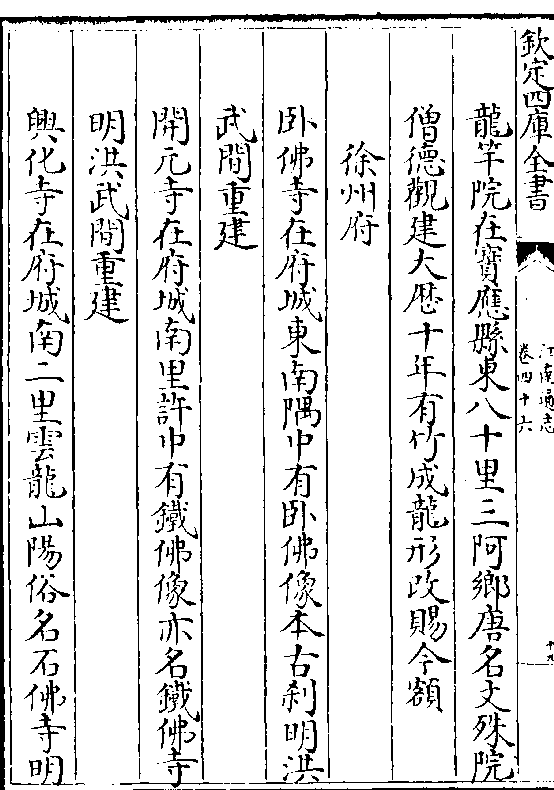 欽定四庫全書
江南通志
卷四十六
十九
龍竿院在寶應縣東八十里三阿鄉唐名文殊院
僧德觀建大歴十年有竹成龍形改賜今額
徐州府
卧佛寺在府城東南隅中有卧佛像本古刹明洪
武間重建
開元寺在府城南里許中有鐵佛像亦名鐵佛寺
明洪武間重建
興化寺在府城南二里雲龍山陽俗名石佛寺明